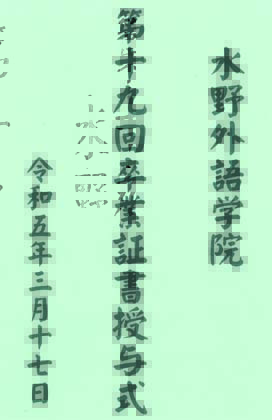 水野外語学院
第十九回卒業証書授与式
令和五年三月十七日